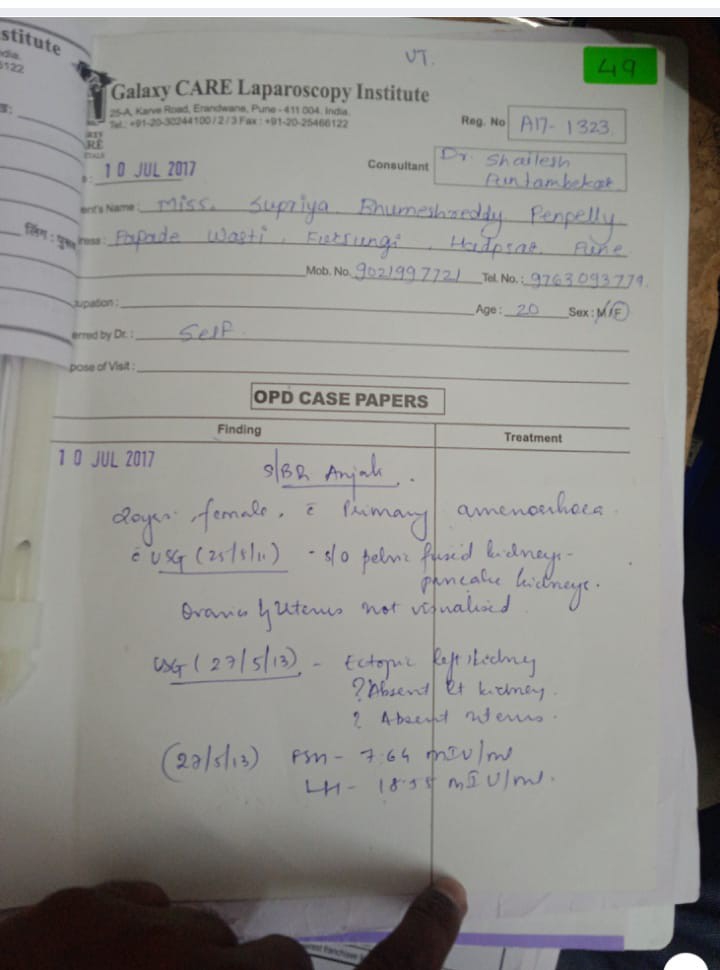 stitute
dia.
5122
लिंग : पुरू
UT.
49
Galaxy CARE Laparoscopy Institute
25-A, Karve Road, Erandwane, Pune - 411 004. India.
Tel.: +91-20-30244100 / 2 / 3 Fax : +91-20-25466122
Reg. No A17- 1323.
10 JUL 2017
Consultant Dr. Shailesh
Puntambekar.
ent's Name : Miss. Supriya Bhumeshreddy Penpelly
ress : Papade Wasti, Fursungi, Hadpsar, Pune
Mob. No. 9021997721 Tel. No. : 9763093779.
upation :
Age : 20 Sex : M/F
erred by Dr. : Self
pose of Visit :
OPD CASE PAPERS
Finding Treatment
10 JUL 2017
S/BR Anjali.
20yr female, c̄ Primary amenorrhoea.
c̄ USG (25/5/11) - s/o pelvic fused kidneys-
pancake kidneys.
Ovaries & Uterus not visualised
USG (27/5/13) - Ectopic left kidney
? Absent Rt kidney.
? Absent uterus.
(27/5/13) FSH - 7.64 mIU/ml
LH - 18.55 mIU/ml.